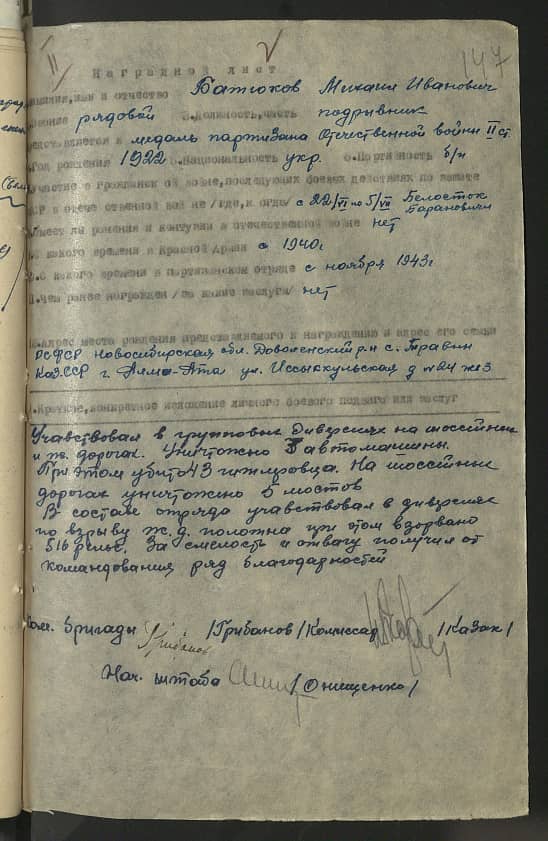 II
147
Наградной лист
Фамилия, имя и отчество Батюков Михаил Иванович
звание рядовой 3. Должность, часть подрывник
Представляется к медаль партизана Отечественной войны II ст.
Год рождения 1922 5. Национальность укр. 6. Партийность б/п
Участие в гражданской войне, последующих боевых действиях по защите
СССР и отечественной войне /где, когда/ с 22/VI по 5/VII Белосток
Барановичи
Имеет ли ранения и контузии в отечественной войне нет
С какого времени в Красной Армии с 1940г
С какого времени в партизанском отряде с ноября 1943г
11. Чем ранее награжден /за какие заслуги/ нет
12. адрес места рождения представляемого к награждению и адрес его семьи
РСФСР Новосибирская обл. Доволенский р-н с. Травин
КазССР г. Алма-Ата ул. Иссыккульская д № 24
1. Краткое, конкретное изложение личного боевого подвига или заслуг
Учавствовал в групповых диверсиях на шоссейных
и ж. дорогах. Уничтожено 3 автомашины.
При этом убито 43 гитлеровца. На шоссейных
дорогах уничтожено 5 мостов
В составе отряда учавствовал в диверсиях
по взрыву ж. д. полотна при этом взорвано
516 рельс. За смелость и отвагу получил от
командования ряд благодарностей
Ком. бригады Грибанов /Грибанов/ Комиссар /Казак/
Нач. штаба /Онищенко/